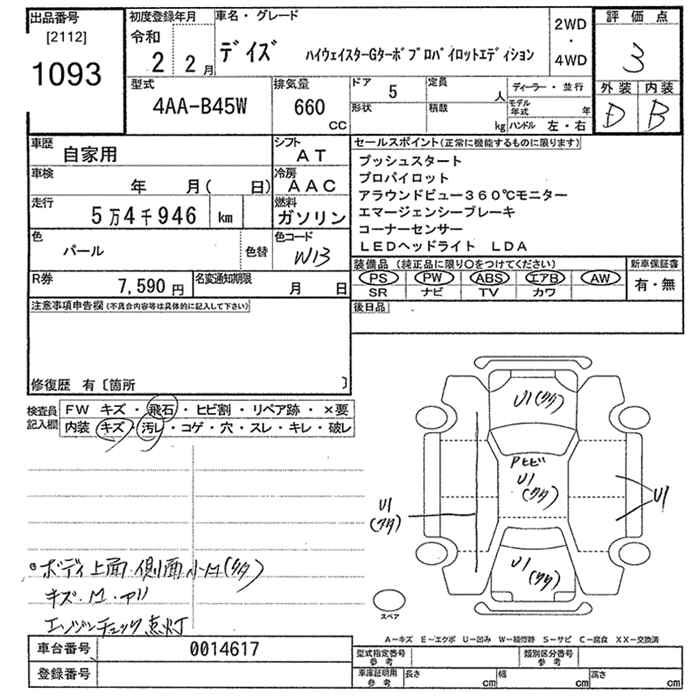 出品番号
[2112]
1093
初度登録年月
令和
2 2月
車名・グレード
デイズ ハイウェイスターGターボプロパイロットエディション
2WD
・
4WD
評価点
3
外装 内装
D B
型式
4AA-B45W
排気量
660
cc
ドア 5
形状
定員 人
積数 kg
ディーラー・並行
モデル年式 年
ハンドル 左・右
車歴
自家用
シフト
AT
車検
年 月( 日)
冷房
AAC
走行
5万4千946 km
燃料
ガソリン
色
パール
色替
色コード
W13
R券
7,590円
名変通知期限
月 日
セールスポイント(正常に機能するものに限ります)
プッシュスタート
プロパイロット
アラウンドビュー360℃モニター
エマージェンシーブレーキ
コーナーセンサー
LEDヘッドライト LDA
装備品(純正品に限り○をつけてください)
PS PW ABS エアB AW
SR ナビ TV カワ
新車保証書
有・無
後日品
注意事項申告欄(不具合内容等は具体的に記入して下さい)
修復歴 有〔箇所 〕
検査員
記入欄
FW キズ・飛石・ヒビ割・リペア跡・×要
内装 キズ・汚レ・コゲ・穴・スレ・キレ・破レ
U1(タタ)
Pヒビ
U1
(タタ)
U1
(タタ)
U1
U1
(タタ)
スペア
ボディ上面・側面小凹(タタ)
キズ・凹・アリ
エンジンチェック点灯
A-キズ E-エクボ U-凹み W-補修跡 S-サビ C-腐食 XX-交換済
車台番号
0014617
登録番号
型式指定番号
参考
類別区分番号
参考
車庫証明用
参考
長さ cm
幅 cm
高さ cm